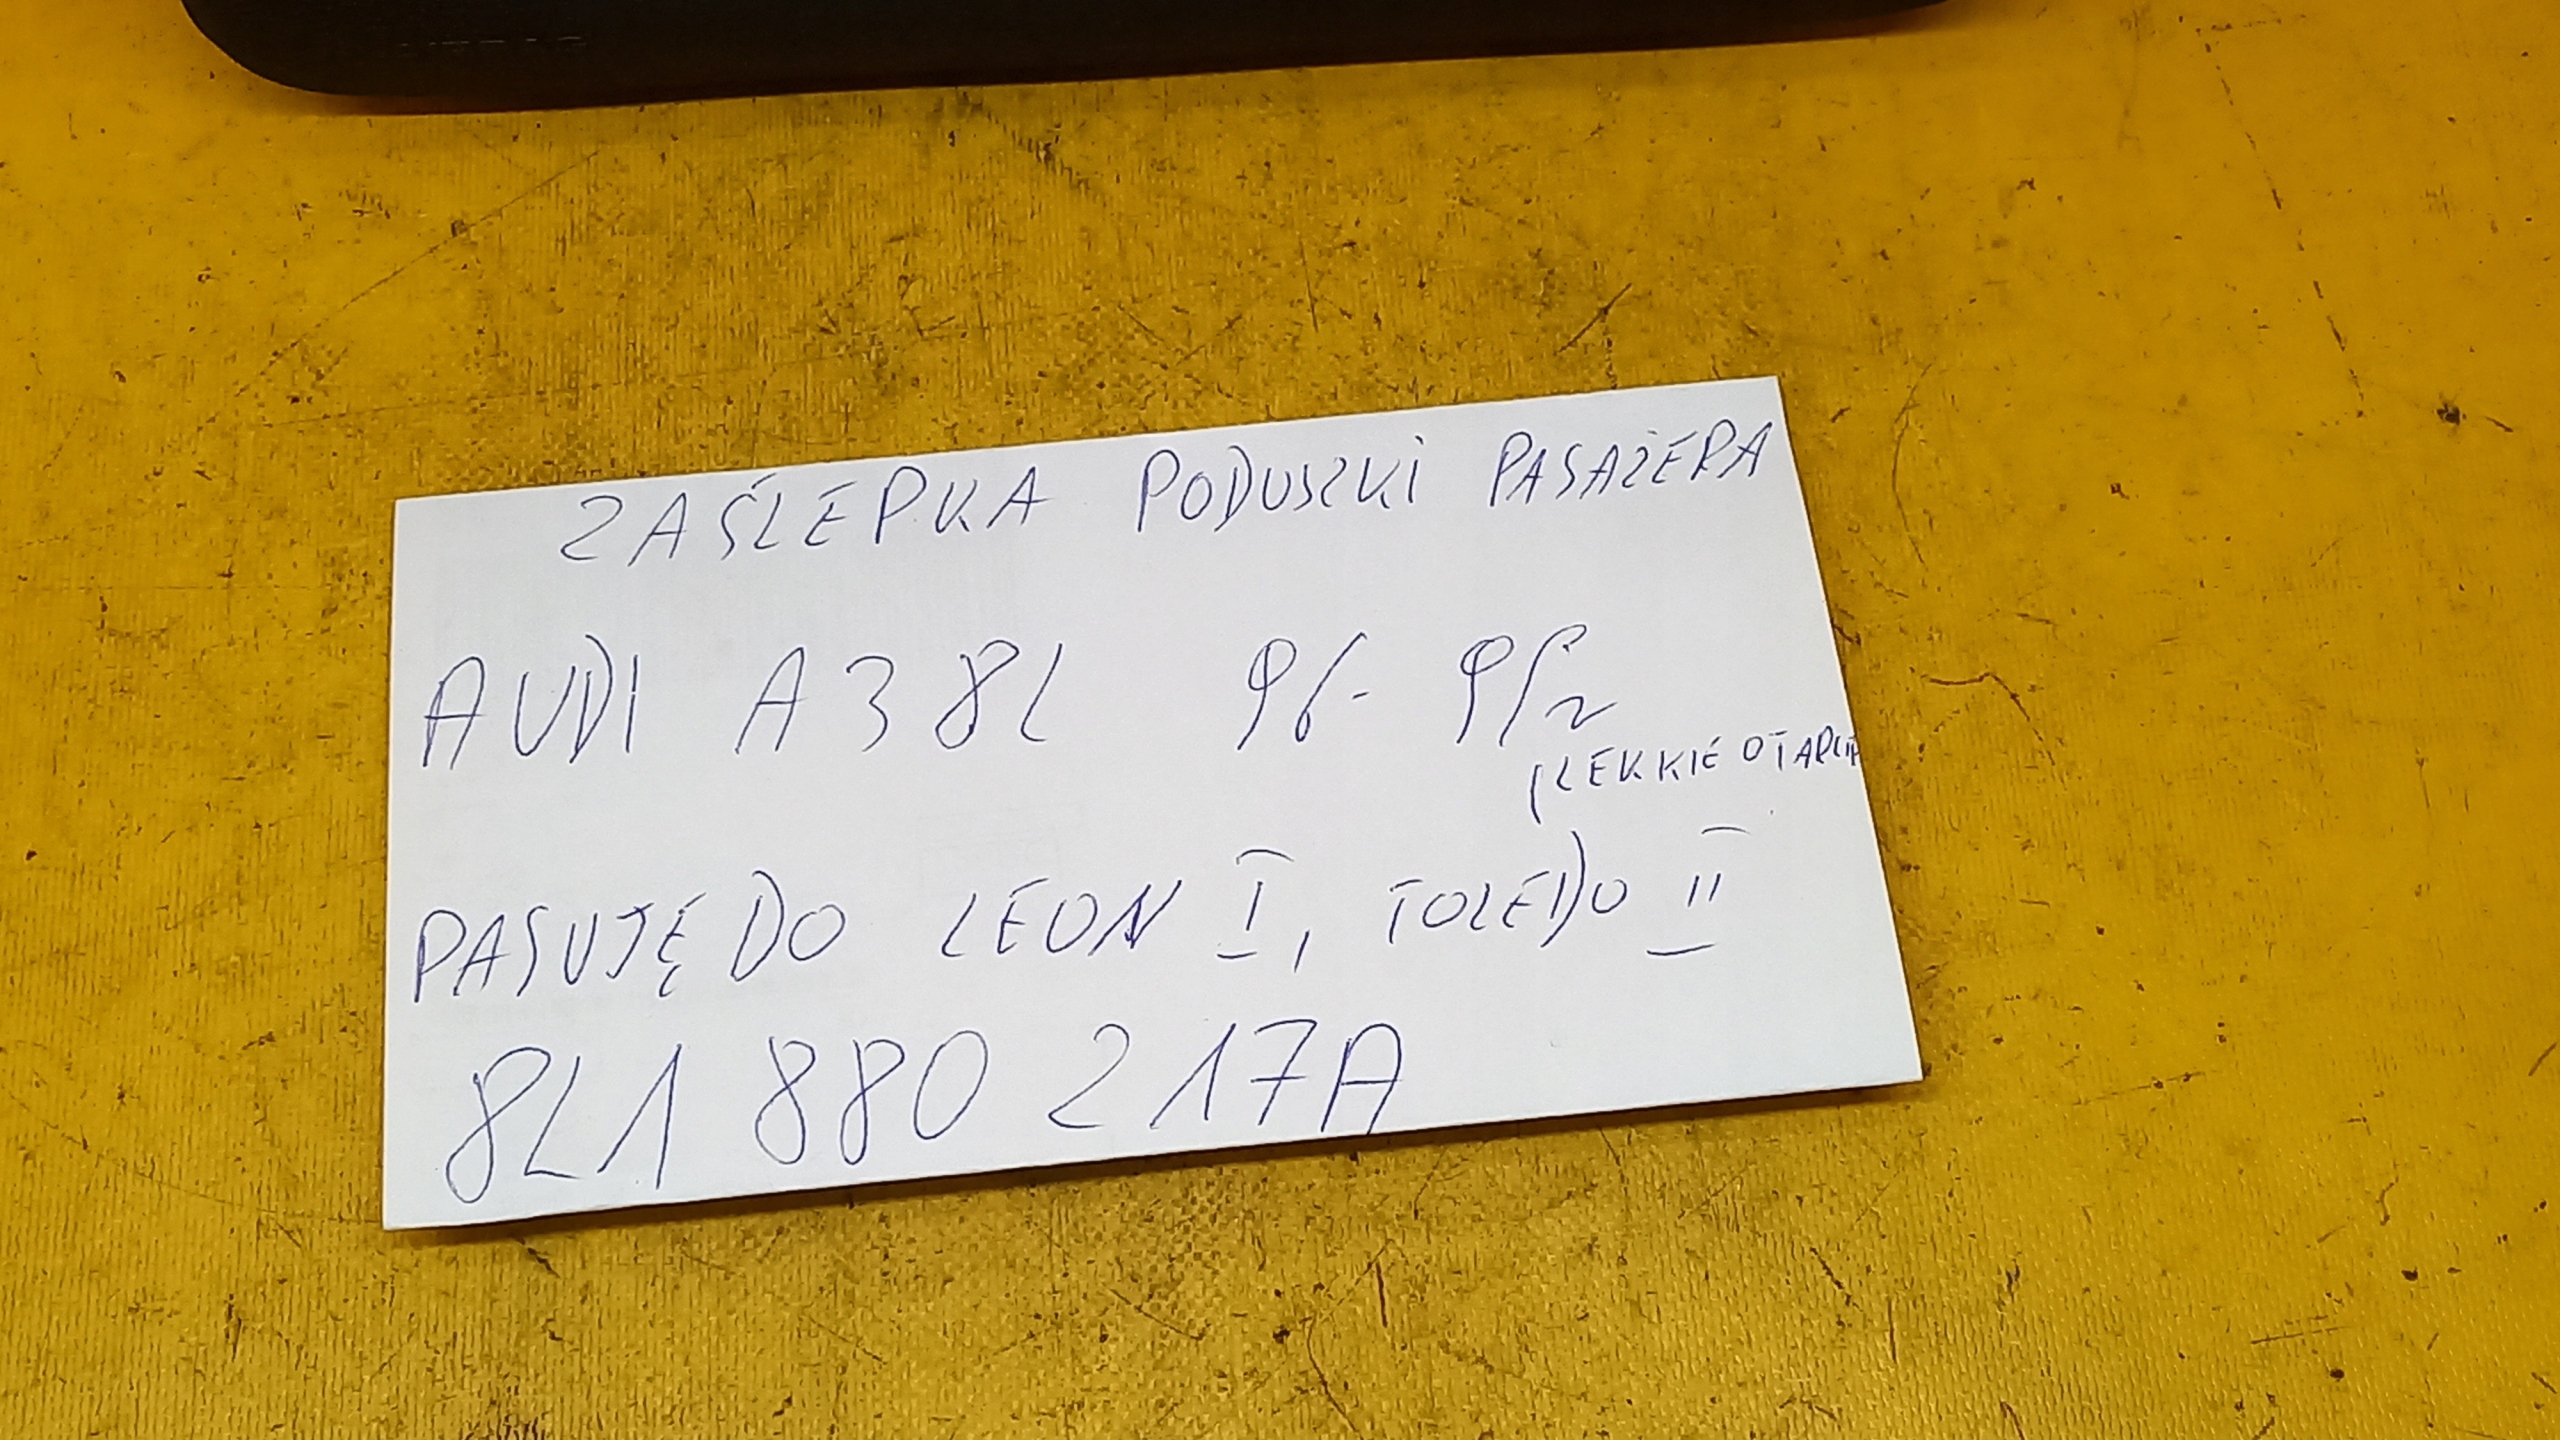 ZAŚLEPKA PODUSZKI PASAŻERA
AUDI A3 8L 96-
(LEKKIE OTARCIE
PASUJĘ DO LEON I, TOLEDO II
8L1 880 217A